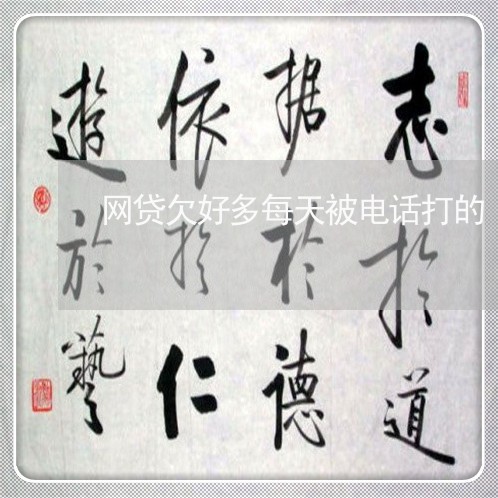 志於道
据於德
依於仁
遊於藝
网贷欠好多每天被电话打的